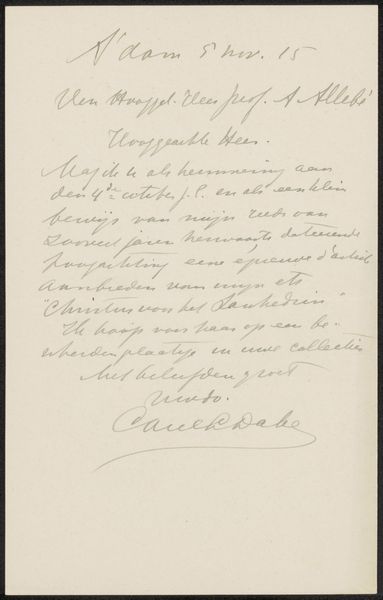 A'dam 5 nov. 15
Den Hooggel. Heer Prof. A Allebé
Hooggeachte Heer.
Mag ik U als herinnering aan
den 4de october j.l. en als een klein
bewijs van mijn reeds van
zooveel jaren herwaarts dateerende
hoogachting eene épreuve d'artiste
aanbieden van mijn ets
"Christus voor het Sanhedrin"
Ik hoop voor haar op een be-
scheiden plaatsje in uwe collecties
Met beleefden groet
Uwdw.
Carel L Dake